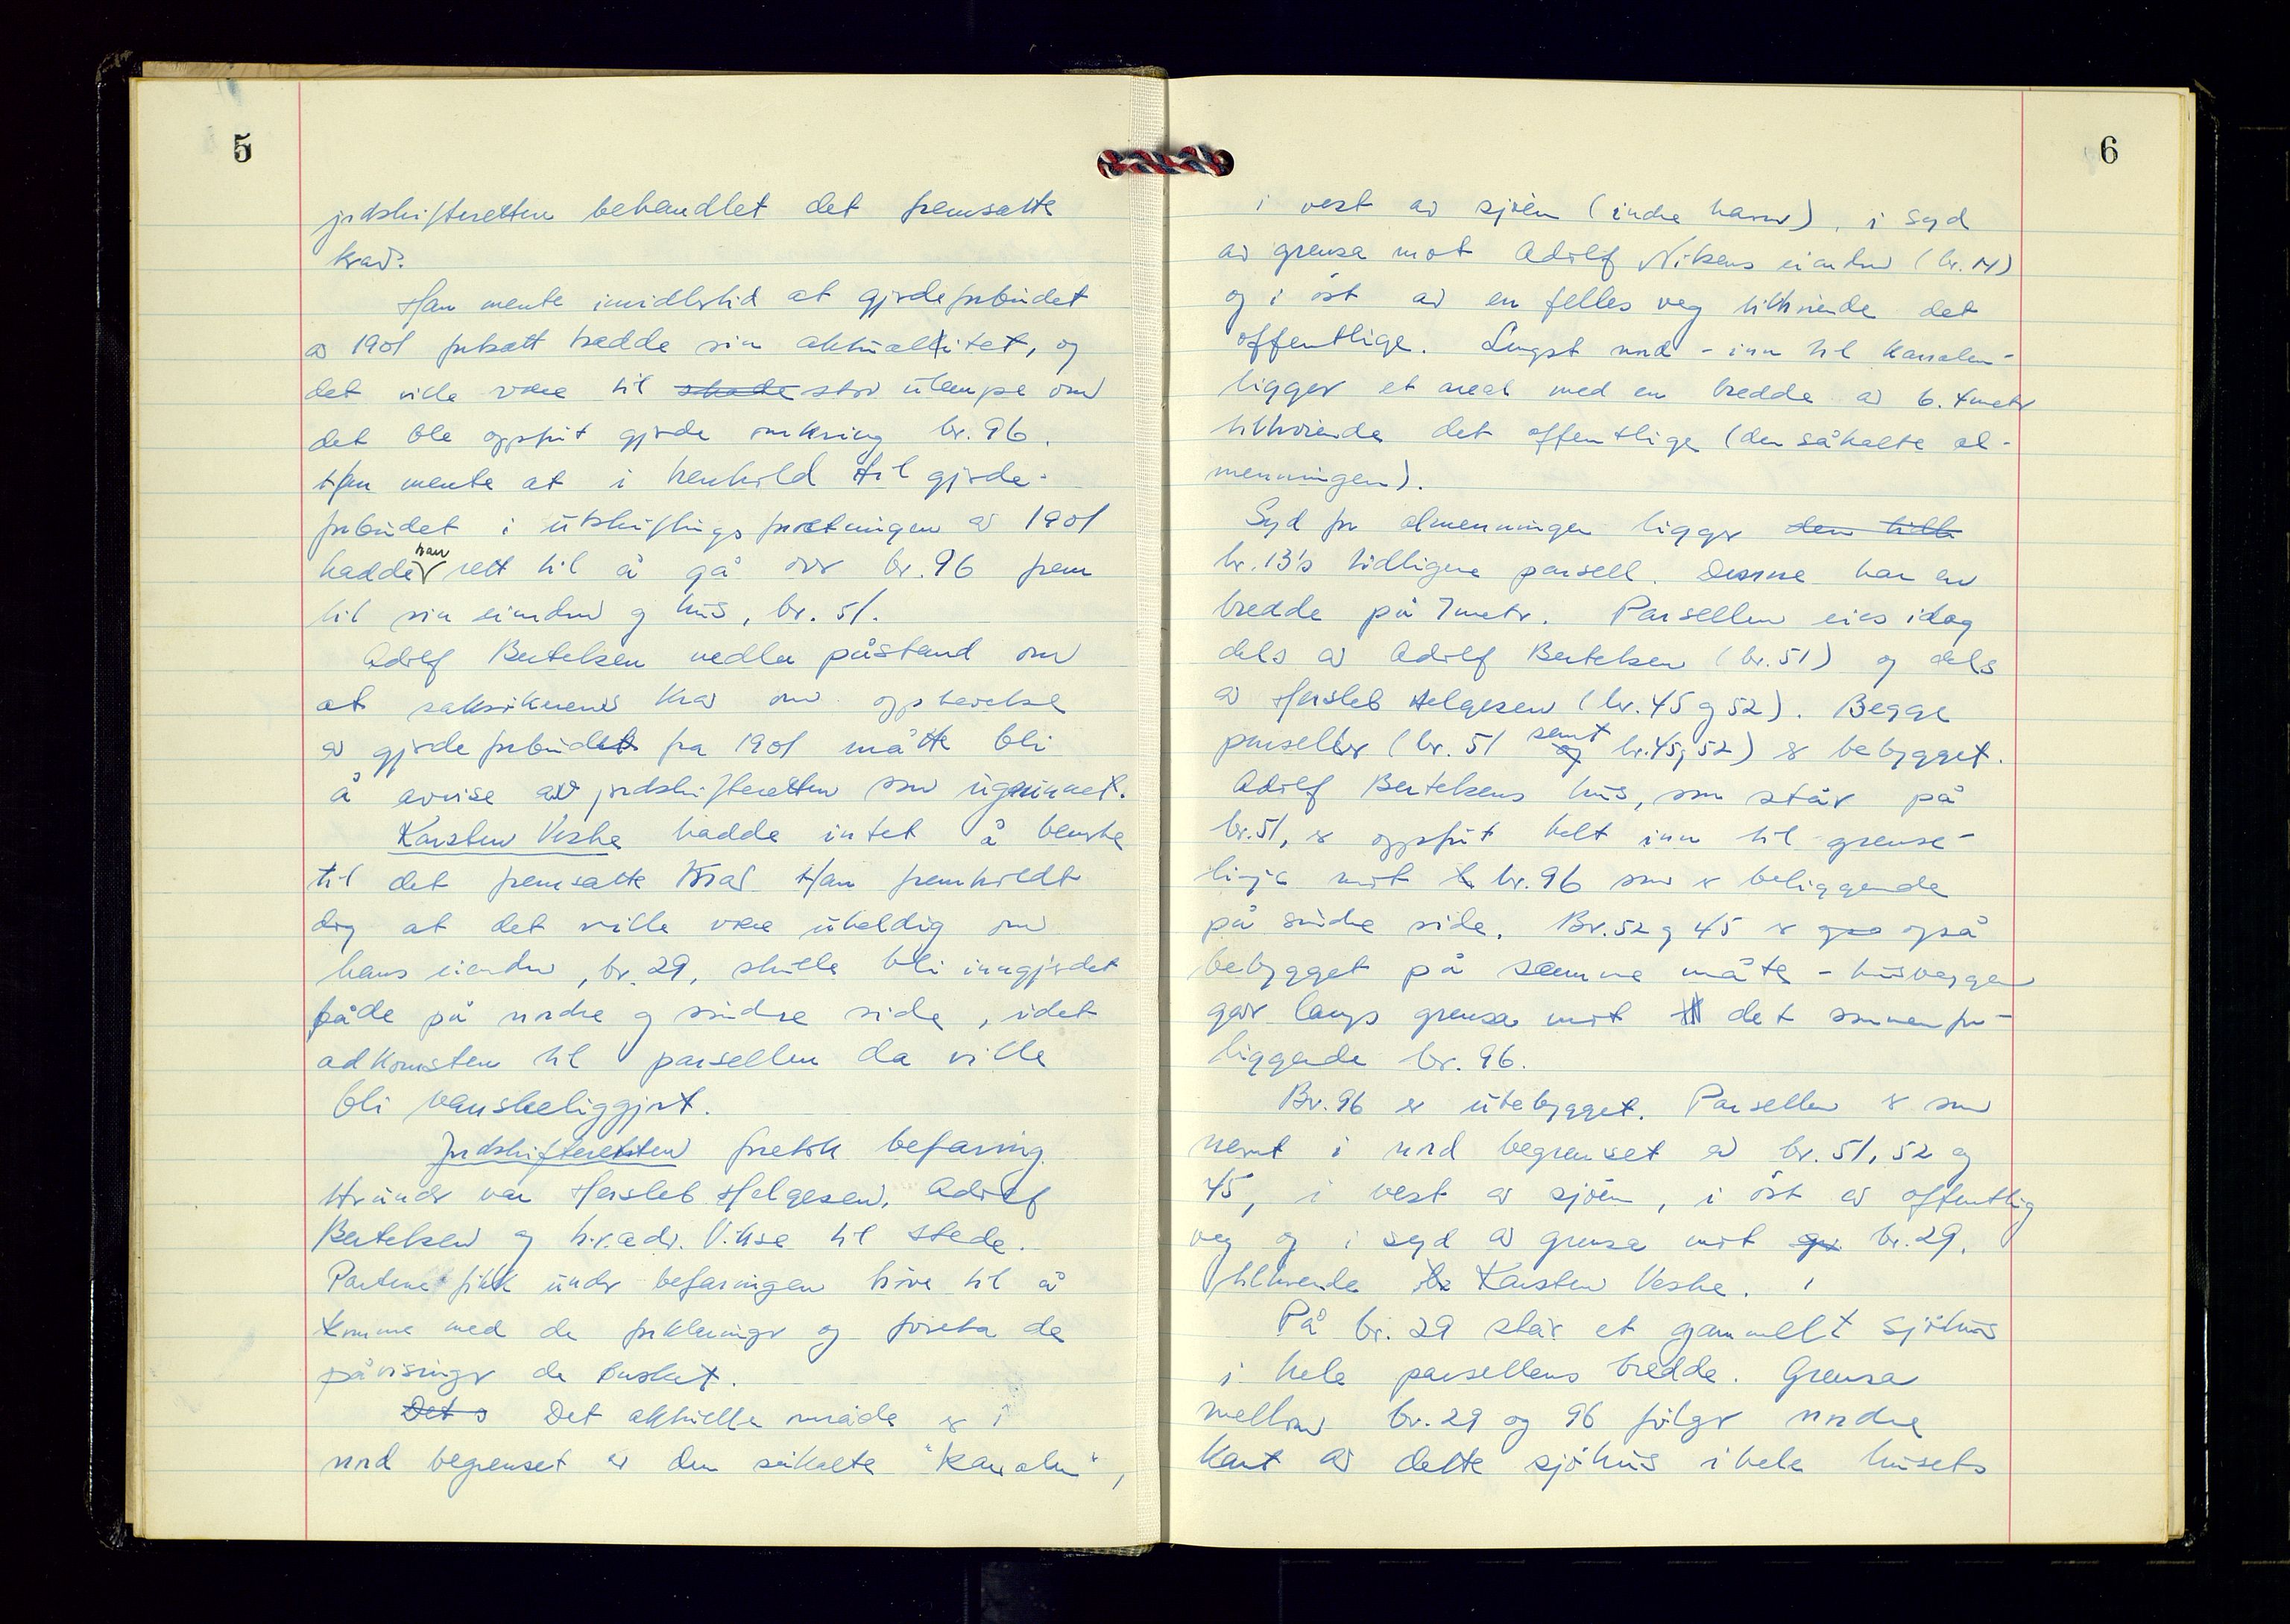 5
jordskifteretten behandlet det fremsatte
krav.
Han mente imidlertid at gjerdeforbudet
av 1901 fortsatt hadde sin aktualitet, og
det ville være til skade stor ulempe om
det ble oppført gjerde omkring br. 96.
Han mente at i henhold til gjerde-
forbudet i utskiftingsforretningen av 1901
hadde han rett til å gå over br. 96 frem
til sin eiendom og hus, br. 51.
Adolf Bertelsen nedla påstand om
at saksøkerens krav om opphevelse
av gjerdeforbudet fra 1901 måtte bli
å avvise av jordskifteretten som ugrunnet.
Karsten Veshe hadde intet å bemerke
til det fremsatte krav. Han fremholdt
dog at det ville være uheldig om
hans eiendom, br. 29, skulle bli inngjerdet
både på nordre og søndre side, idet
adkomsten til parsellen da ville
bli vanskeliggjort.
Jordskifteretten foretok befaring.
Herunder var Hersleb Helgesen, Adolf
Bertelsen og h.r.adv. Vikse til stede.
Partene fikk under befaringen høve til å
komme med de forklaringer og foreta de
påvisninger de ønsket.
Det s Det aktuelle område er i
nord begrenset av den såkalte "kanalen",
6
i vest av sjøen (indre havn), i syd
av grensa mot Adolf Nilsens eiendom (br. 14)
og i øst av en felles veg tilhørende det
offentlige. Lengst nord - inn til kanalen -
ligger et areal med en bredde av 6.4 meter
tilhørende det offentlige (den såkalte al-
menningen).
Syd for almenningen ligger den till
br. 13's tidligere parsell. Denne har en
bredde på 7 meter. Parsellen eies idag
dels av Adolf Bertelsen (br. 51) og dels
av Hersleb Helgesen (br. 45 og 52). Begge
parseller (br. 51 og samt br. 45 og 52) er bebygget.
Adolf Bertelsens hus, som står på
br. 51, er oppført helt inn til grense-
linja mot b br. 96 som er beliggende
på søndre side. Br. 52 og 45 er også
bebygget på samme måte - husveggen
går langs grensa mot det sønnenfor-
liggende br. 96.
Br. 96 er utebygget. Parsellen er som
nevnt i nord begrenset av br. 51, 52 og
45, i vest av sjøen, i øst av offentlig
veg og i syd av grensa mot gr. br. 29,
tilhørende br Karsten Veshe.
På br. 29 står et gammelt sjøhus
i hele parsellens bredde. Grensa
mellom br. 29 og 96 følger nordre
kant av dette sjøhus i hele husets